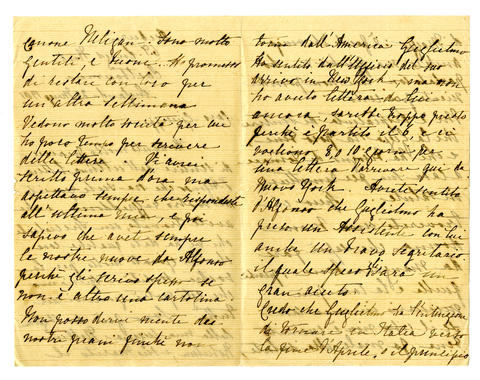 canone Miligan. Sono molto
gentili, e buoni. Ho promesso
di restare con loro per
un'altra settimana
Vedono molto società per cui
ho poco tempo per scrivere
delle lettere. Vi avrei
scritto prima d'ora ma
aspettavo sempre che rispondeste
all'ultima mia, e poi
sapevo che avete sempre
le nostre nuove da Alfonso
perchè gli scrivo spesso se
non è altro una cartolina
Non posso dirvi niente dei
nostri piani finchè non
torni dall'America Guglielmo
Ho sentito dall'Ufficio del suo
arrivo in New York, ma non
ho avuto lettera da lui
ancora, sarebbe troppo presto
perchè è partito il 6, e ci
vogliono 8, o 10 giorni per
una lettera d'arrivare qui da
Nuova York. Avete sentito
d'Alfonso che Guglielmo ha
preso un Assistente con lui
anche un bravo segretario
il quale spero sarà un
gran aiuto.
Credo che Guglielmo ha l'intenzione
di tornare in Italia verso
la fine d'Aprile, o il principio